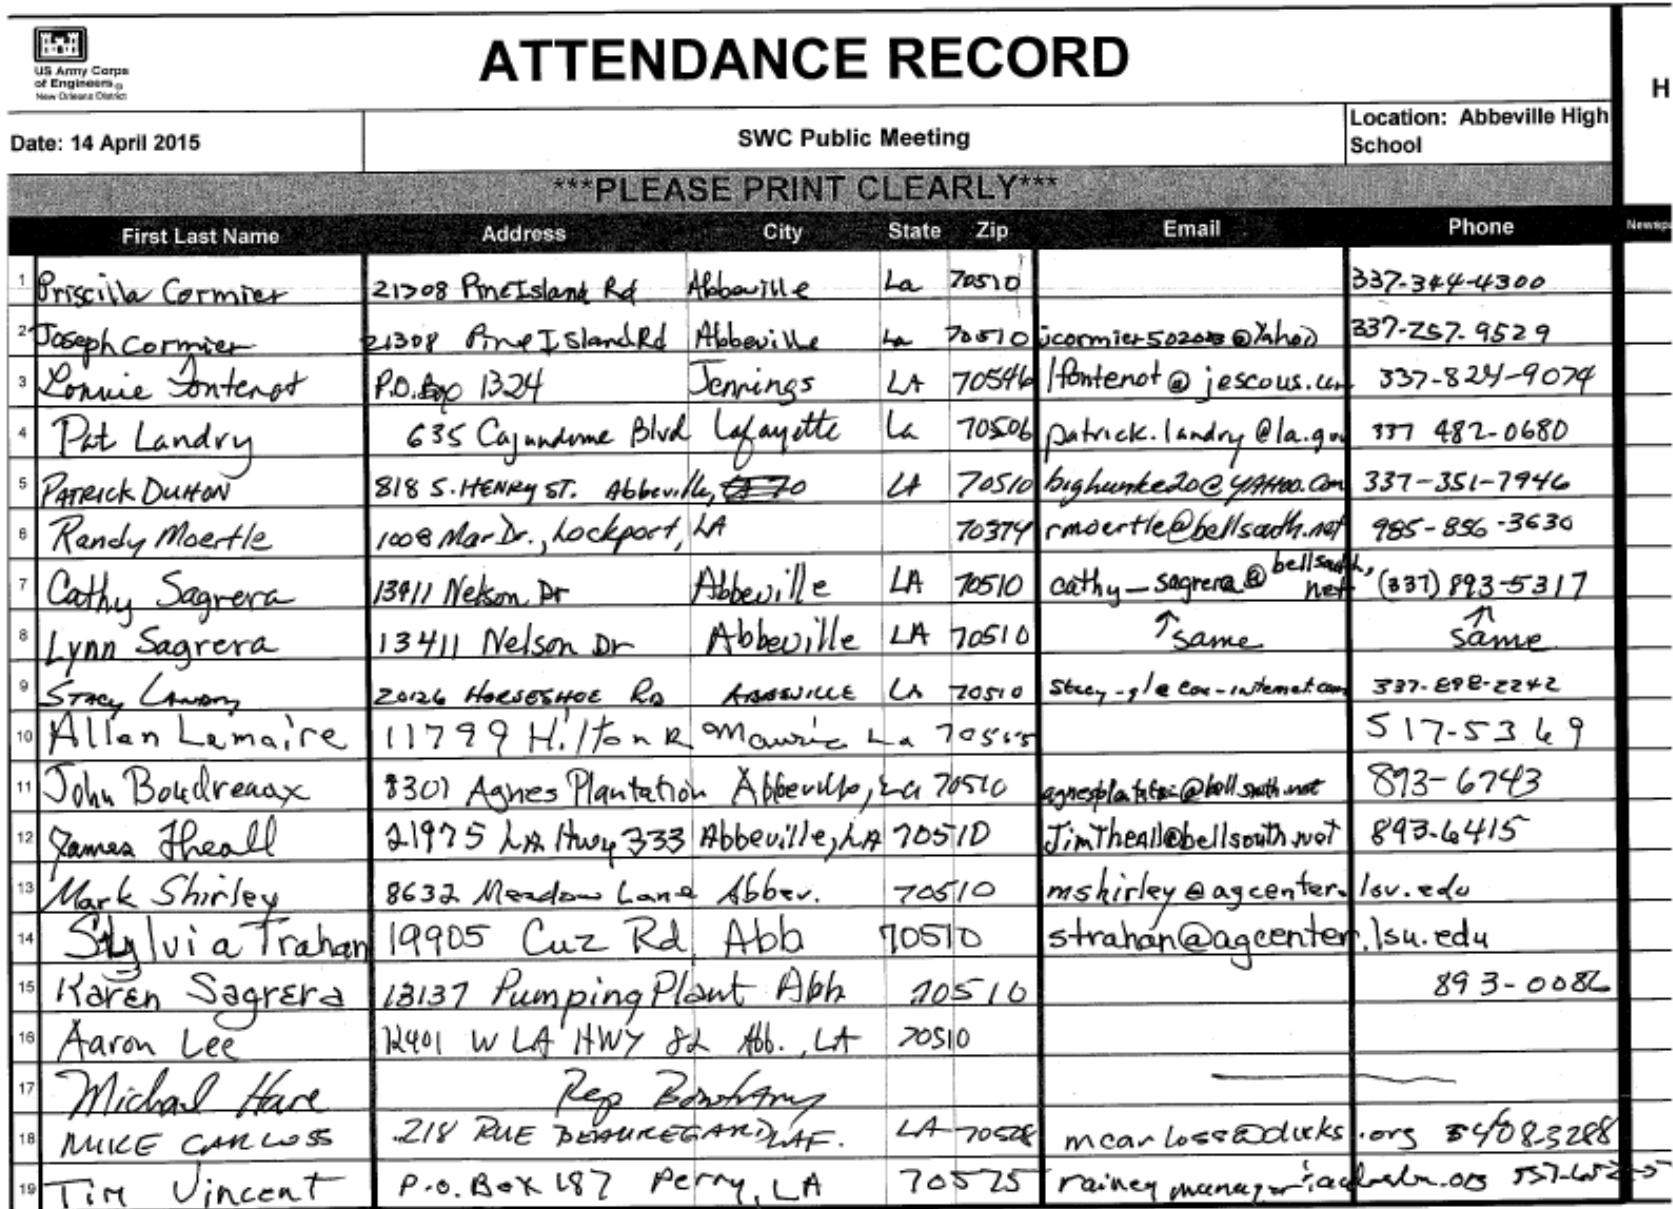 US Army Corps
of Engineers
New Orleans District
ATTENDANCE RECORD
H
Date: 14 April 2015 SWC Public Meeting Location: Abbeville High School
***PLEASE PRINT CLEARLY***
First Last Name Address City State Zip Email Phone
1 Priscilla Cormier 21308 Pine Island Rd Abbeville La 70510 337-344-4300
2 Joseph Cormier 21308 Pine Island Rd Abbeville La 70510 337-257-9529
3 Lonnie Fontenot P.O. Box 1324 Jennings LA 70546 lfontenot@jescous.com 337-824-9074
4 Pat Landry 635 Cajundome Blvd Lafayette La 70506 patrick.landry@la.gov 337 482-0680
5 PATRICK DUHON 818 S. HENRY ST. Abbeville, LA 70510 bighunke20@YAHOO.Com 337-351-7946
6 Randy Moertle 1008 Mar Dr., Lockport, LA 70374 rmoertle@bellsouth.net 985-856-3630
7 Cathy Sagrera 13411 Nelson Dr Abbeville LA 70510 cathy_sagrera@bellsouth.net (337) 893-5317
8 Lynn Sagrera 13411 Nelson Dr Abbeville LA 70510 ↑same ↑same
9 STACY LANDRY 20126 HORSESHOE RD ABBEVILLE LA 70510 stacy-gl@cox-internet.com 337-898-2242
10 Allan Lemaire 11799 Hilton R Mauric La 70555 517-5369
11 John Boudreaux 8301 Agnes Plantation Abbeville, La 70510 893-6743
12 James Theall 21975 LA Hwy 333 Abbeville, LA 70510 JimTheall@bellsouth.net 893-6415
13 Mark Shirley 8632 Meadow Lane Abbev. 70510 mshirley@agcenter.lsu.edu
14 Sylvia Trahan 19905 Cuz Rd Abb 70510 strahan@agcenter.lsu.edu
15 Karen Sagrera 13137 Pumping Plant Abb 70510 893-0086
16 Aaron Lee 12401 W LA HWY 82 Abb., LA 70510
17 Michael Hare Rep Boustany
18 MIKE CARLOSS 218 RUE BEAUREGARD LAF. LA 70508 mcarloss@ducks.org 408-3288
19 Tim Vincent P.O. Box 187 Perry, LA 70575